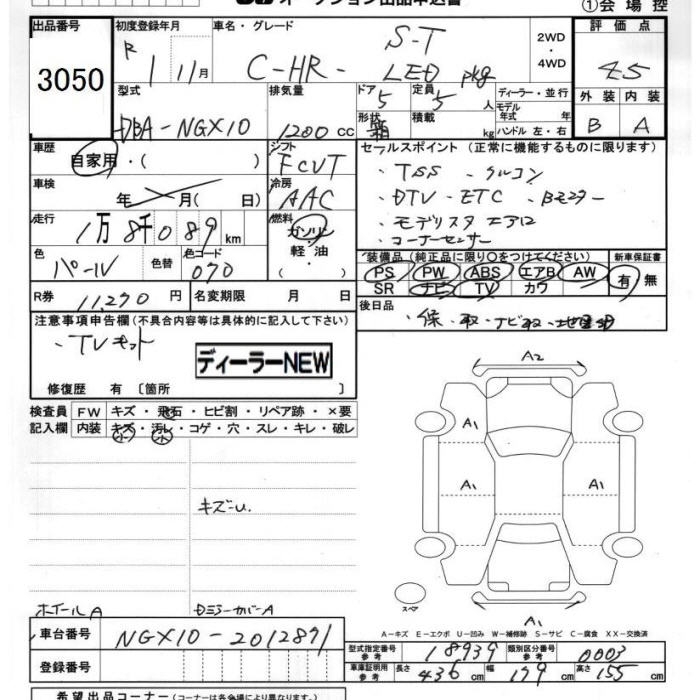 オークション出品申込書
①会場控
出品番号
3050
初度登録年月
R 1 11月
車名・グレード
S-T
C-HR - LED pkg
2WD
・
4WD
評価点
4.5
外装 内装
B A
型式
DBA-NGX10
排気量
1200 cc
ドア 5
定員 5 人
形状 箱
積載 kg
ディーラー・並行
モデル年式 年
ハンドル 左・右
車歴
自家用・( )
シフト
FCVT
セールスポイント (正常に機能するものに限ります)
・TSS ・クルコン
・DTV・ETC ・Bモニター
・モデリスタエアロ
・コーナーセンサー
車検
年 月( 日)
冷房
AAC
走行
1万8千089km
燃料
ガソリン
軽油
・
色
パール
色替
色コード
070
装備品 (純正品に限り○をつけてください)
PS PW ABS エアB AW
SR ナビ TV カワ
新車保証書
有・無
R券
11,270円
名変期限 月 日
後日品
・保・取・ナビ取・
注意事項申告欄 (不具合内容等は具体的に記入して下さい)
・TVキット
ディーラーNEW
修復歴 有 〔箇所 〕
検査員
記入欄
FW キズ・飛石・ヒビ割・リペア跡・×要
内装 キズ・汚レ・コゲ・穴・スレ・キレ・破レ
A2
A1
A1
A1
キズ小U.
スペア
A1
ホイールA
Dミラーカバー A
A-キズ E-エクボ U-凹み W-補修跡 S-サビ C-腐食 XX-交換済
車台番号
NGX10-2012871
型式指定番号 参考
18939
類別区分番号 参考
0003
登録番号
車庫証明用 参考
長さ 436 cm
幅 179 cm
高さ 155 cm
希望出品コーナー (コーナーは各会場により異なります。)